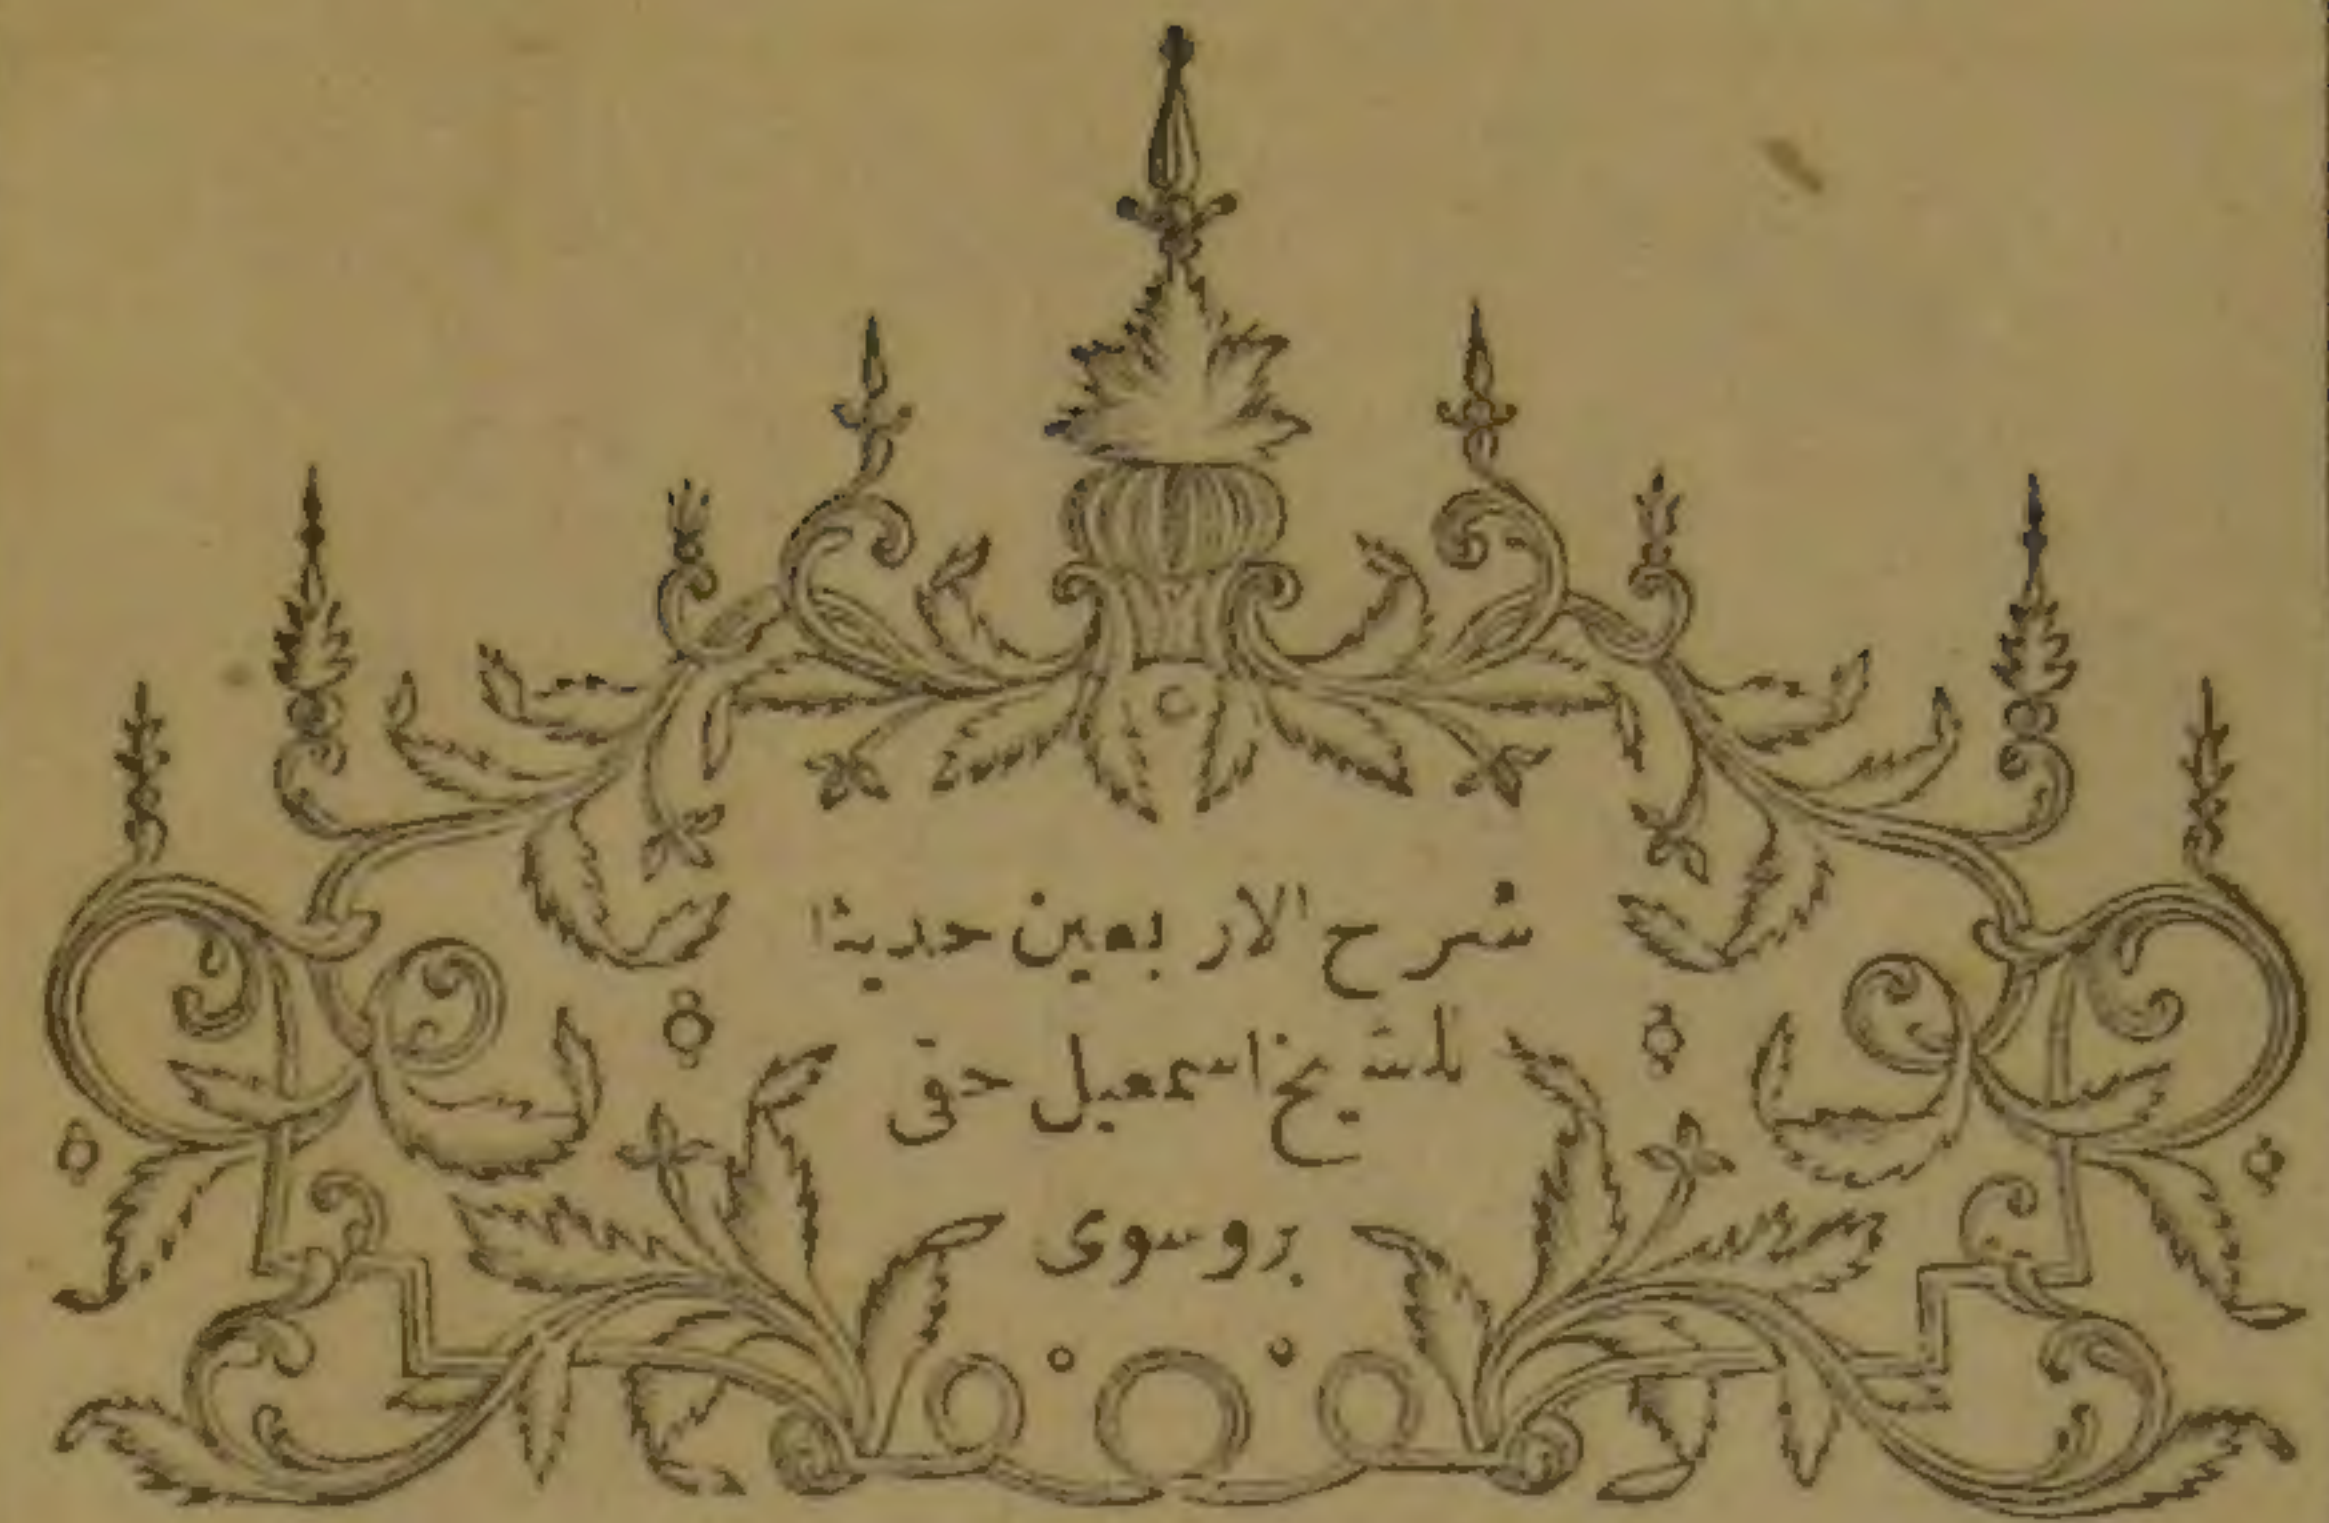 شرح الاربعين حديثا
للشيخ اسمعيل حقى
بروسوى